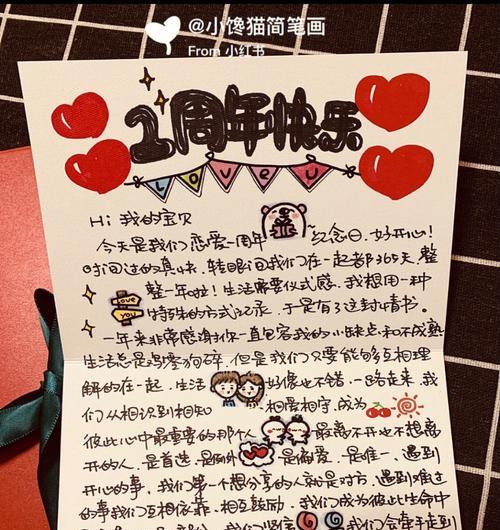 @小馋猫简笔画
From 小红书
1周年快乐
LOVEU
Hi 我的宝贝
今天是我们恋爱一周年 纪念日,好开心!
时间过的真快,转眼间我们在一起都365天,整
整一年啦!生活需要仪式感,我想用一种
Love you
特殊的方式记录,于是有了这封情书。
一年来非常感谢你一直包容我的小缺点和不成熟
生活总是鸡零狗碎,但是我们只要能够互相理
解的在一起,生活 好像也不错,一路走来,我
们从相识到相知 相爱相守,成为
彼此心中最重要的那个人 最离不开也不想离
开的人,是首选,是例外 是偏爱,是唯一,遇到
开心的事,我们第一个想分享的人就是对方,遇到难过
的事我们互相依靠,相互鼓励,我们成为彼此生命中